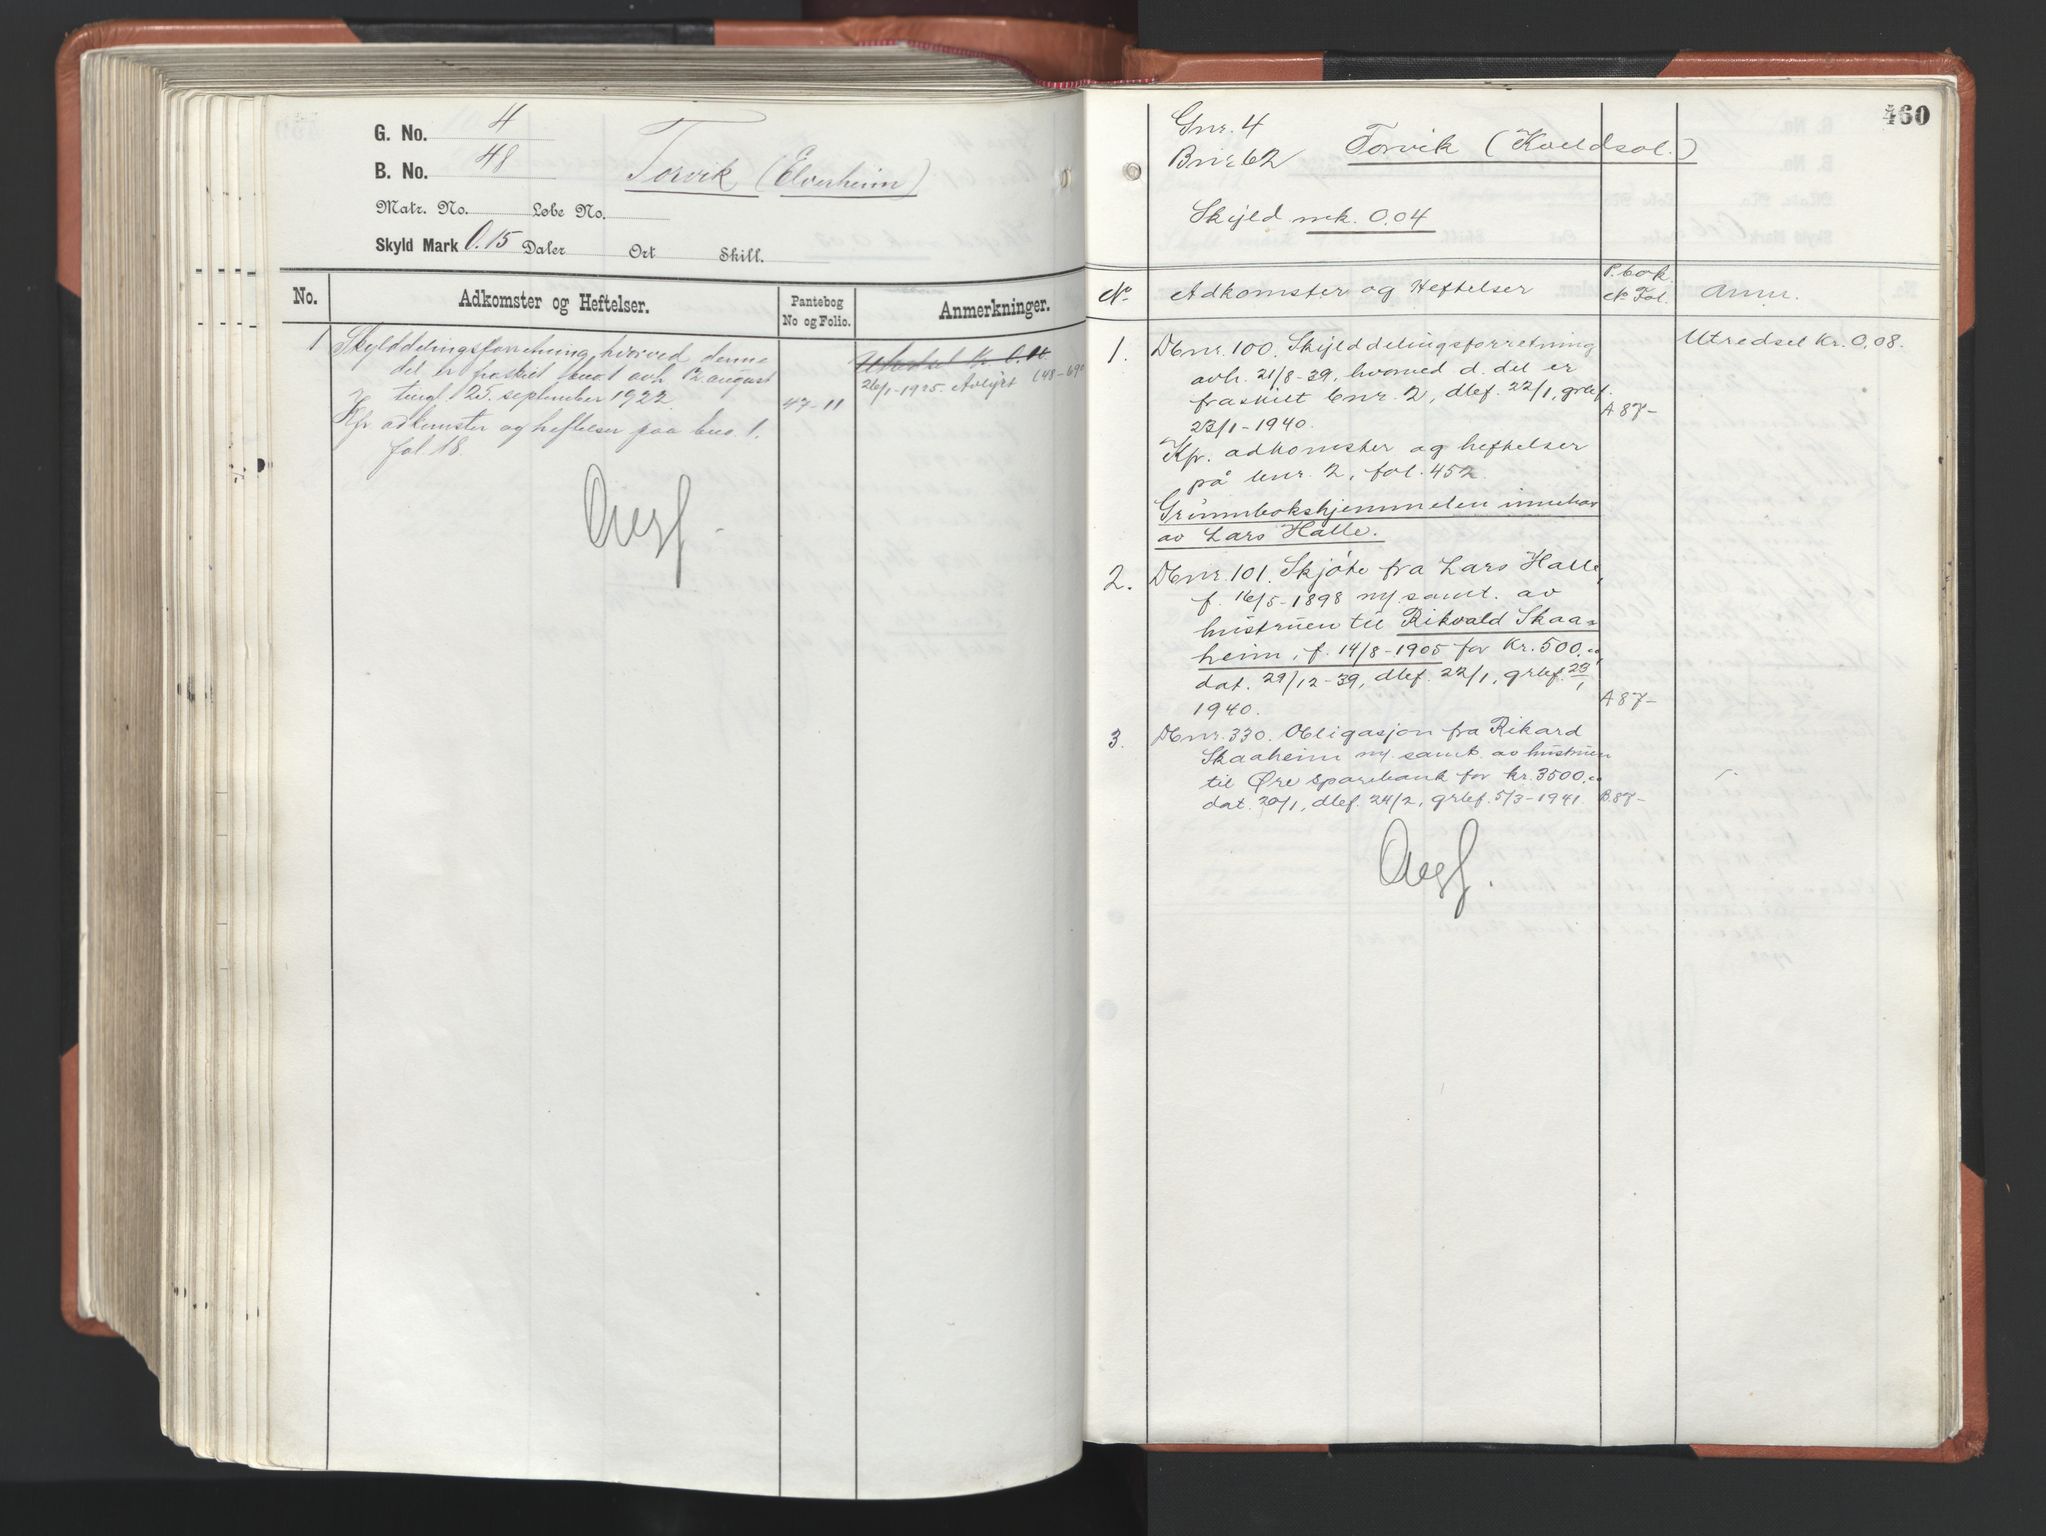 G. No. 4
B. No. 48
Torvik (Elverheim)
Matr. No. Løbe No.
Skyld Mark 0.15 Daler Ort Skill.
No. Adkomster og Heftelser. Pantebog No og Folio. Anmerkninger.
1 Skylddelingsforretning hvorved denne
del er fraskilt bno. 1 avh. 12 august
tingl. 25. september 1922 47-11
Kfr. adkomster og heftelser paa bno. 1.
fol. 18.
Utredsel Kr. 0.
26/1-1925. Avlyst (48-690
Overf.
460
Gnr. 4
Bnr. 62
Torvik (Kveldsol.)
Skyld mrk. 0.04
No. Adkomster og Heftelser P.bok No Fol. Anm.
1. Dbnr. 100. Skylddelingsforretning
avh. 21/8-39, hvorved d. del er
fraskilt bnr. 2, dbf. 22/1, grbf.
23/1-1940. A 87-
Utredsel Kr. 0,08.
Kfr. adkomster og heftelser
på bnr. 2, fol. 452.
Grunnbokshjemmelen innehas
av Lars Halle.
2. Dbnr. 101. Skjøte fra Lars Halle,
f. 16/5-1898 m/ samt. av
hustruen til Rikvald Skaa=
heim, f. 14/8-1905 for Kr. 500,00
dat. 29/12-39, dbf. 22/1, grbf. 23/1
1940. A 87-
3. Dbnr. 330. Obligasjon fra Rikard
Skaaheim m/ samt. av hustruen
til Øre Sparebank for kr. 3500,00
dat. 20/1, dbf. 24/2, grbf. 5/3-1941. B. 87-
Overf.